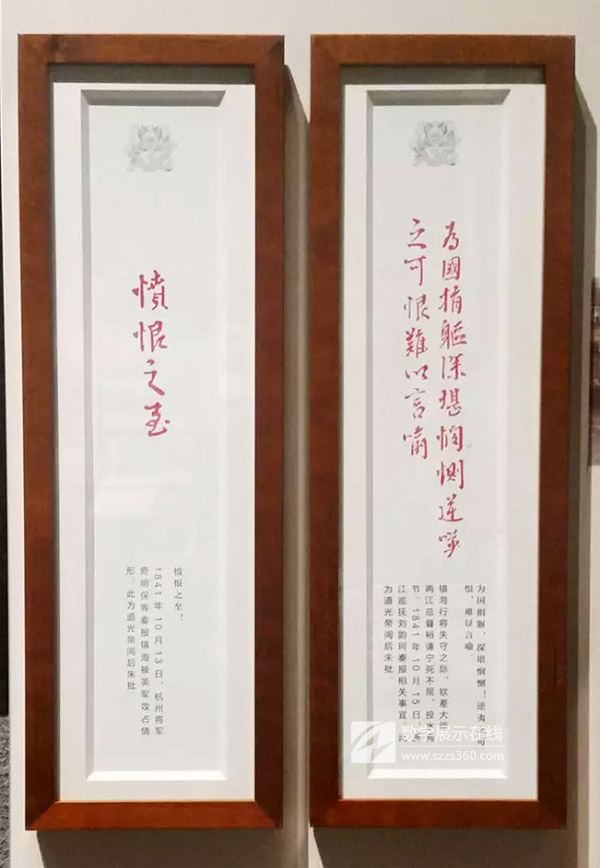 憤恨之至
愤恨之至！
1841年10月13日，杭州将军
奇明保等奏报镇海被英军攻占情
形，此为道光帝阅后朱批
為國捐軀深堪憫惻逆夷
之可恨難以言喻
为国捐躯，深堪悯恻！逆夷之可
恨，难以言喻。
镇海行将失守之际，钦差大臣
两江总督裕谦宁死不屈，投水殉
节。1841年10月15日，浙
江巡抚刘韵珂奏报相关事宜，此
为道光帝阅后朱批。
数字展示在线
www.szzs360.com